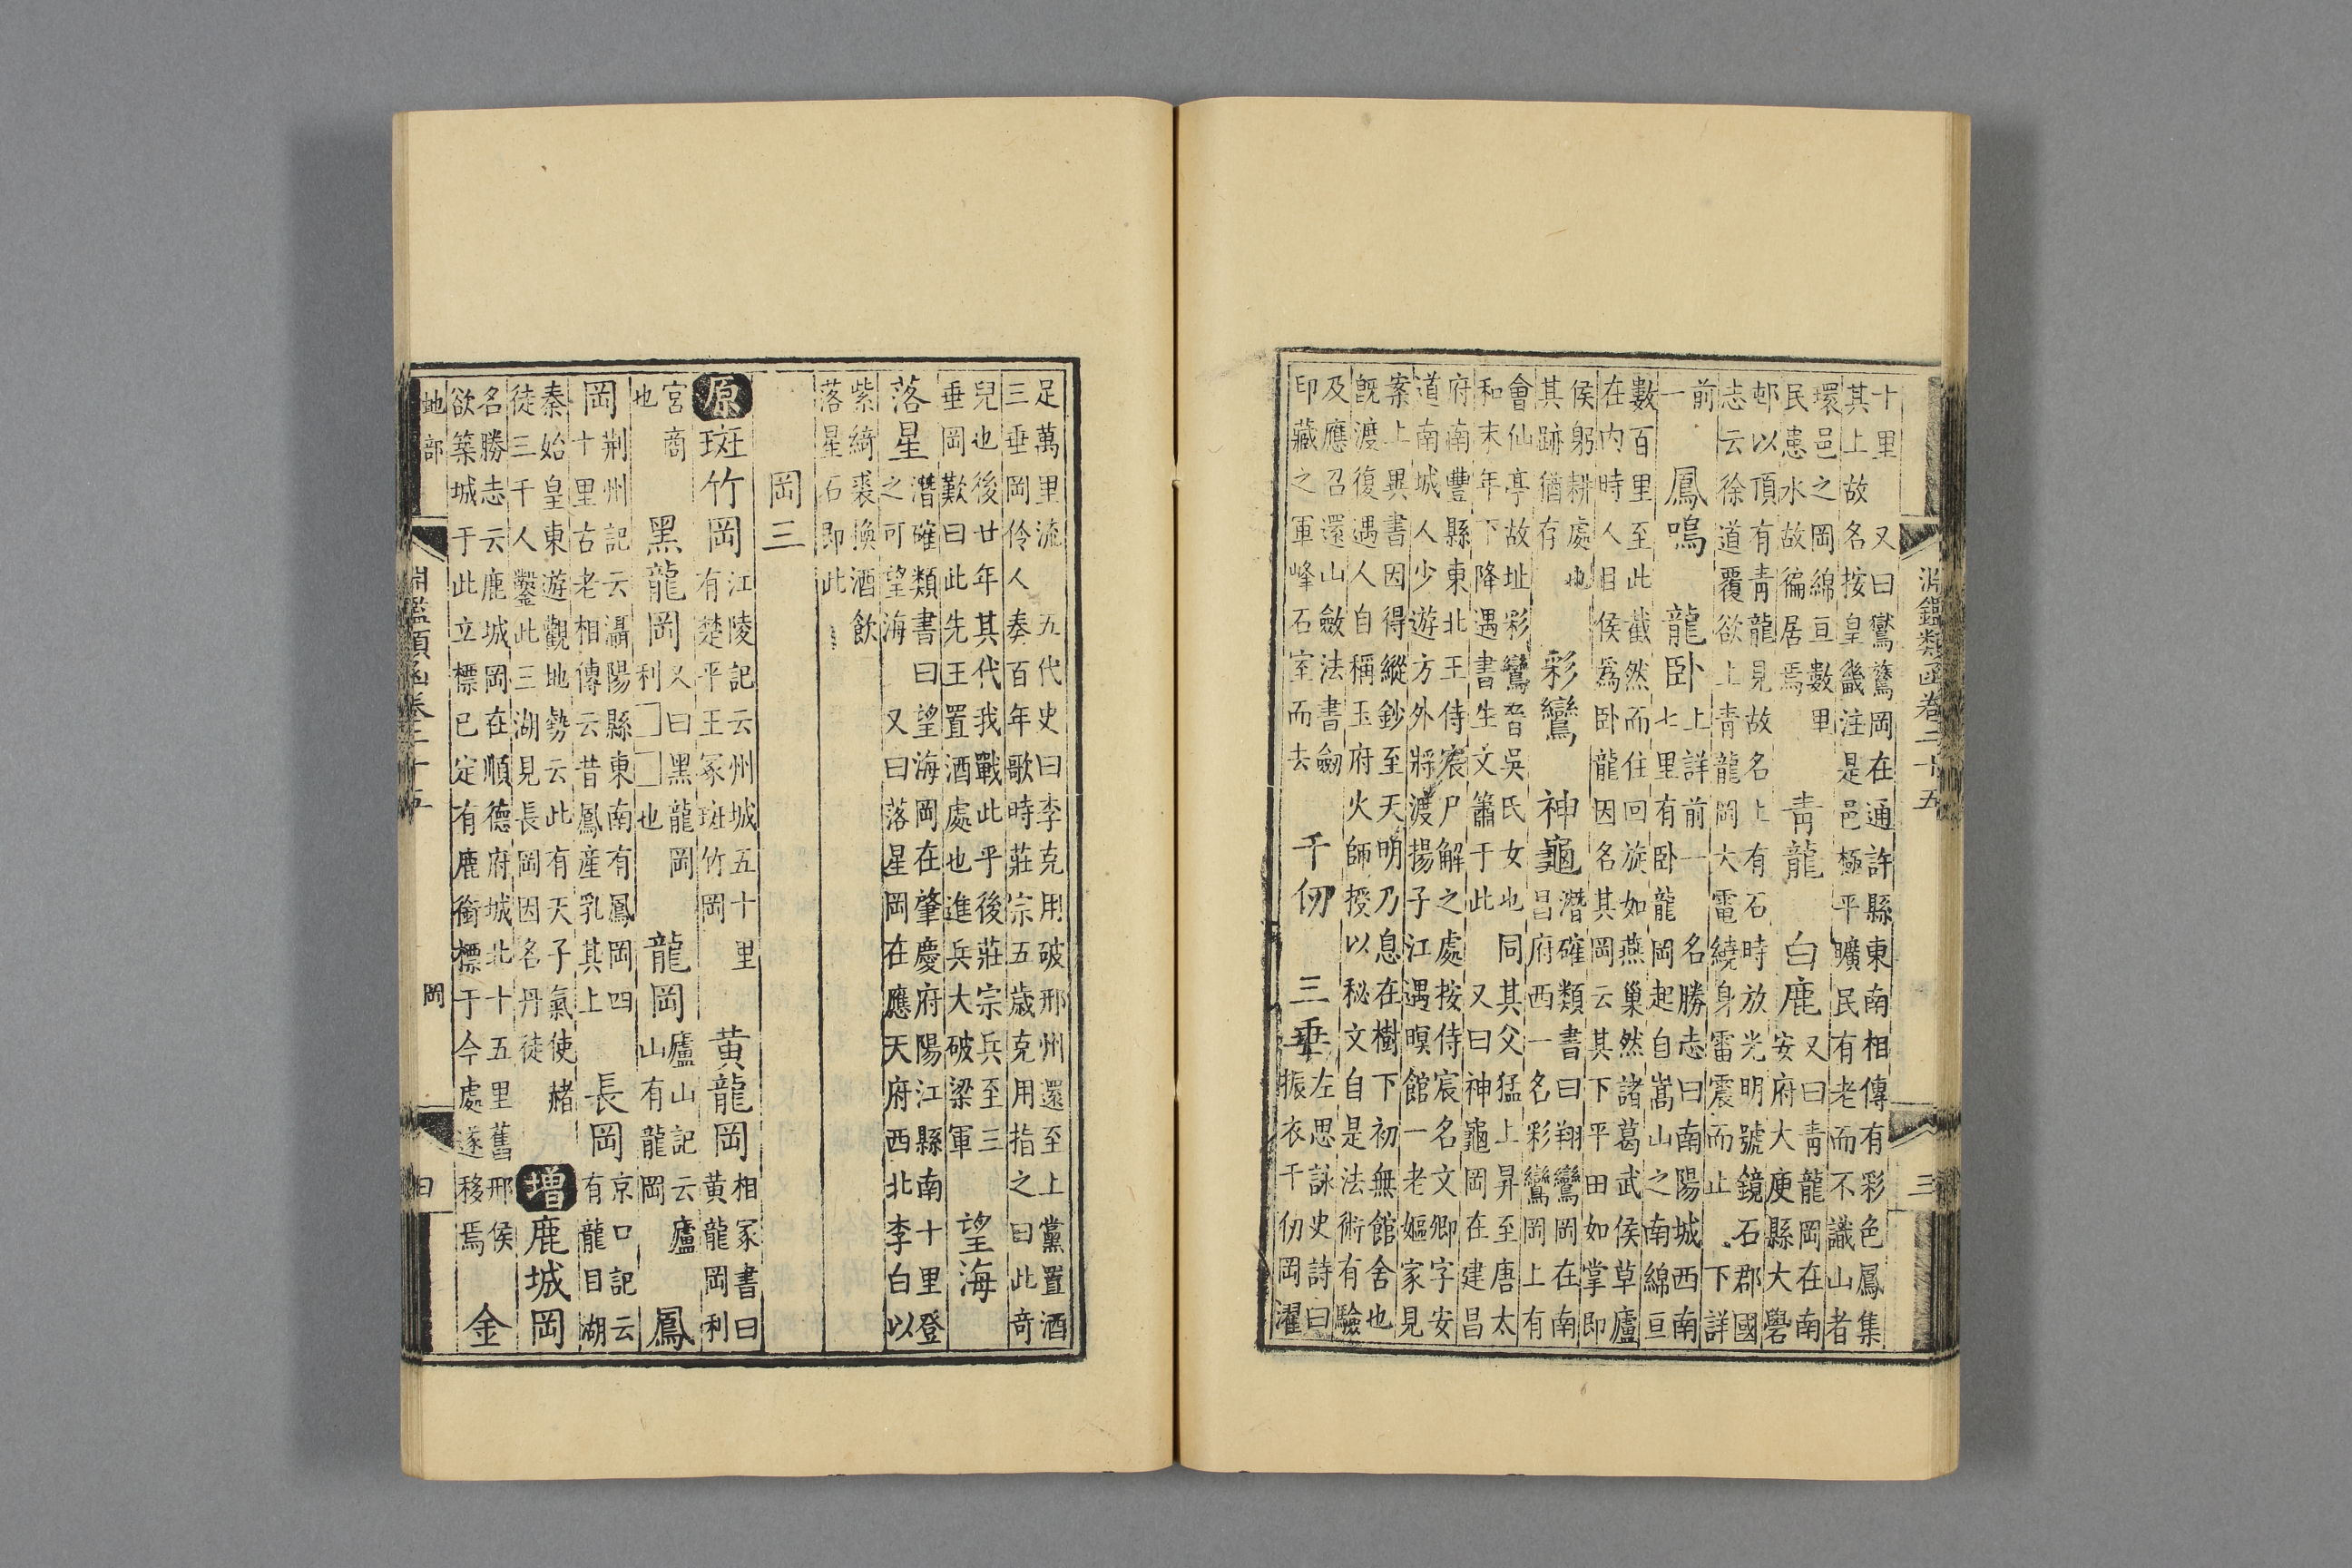 淵鑑類函卷二十五 三
十里 又曰鸑鷟岡在通許縣東南相傳有彩色鳳集
其上故名按皇畿注是邑極平曠民有老而不識山者
環邑之岡綿亘數里
民患水故徧居焉
青龍 白鹿
又曰青龍岡在南
安府大庾縣大礐
邨以頂有青龍見故名上有石時放光明號鏡石郡國
志云徐道覆欲上青龍岡大電繞身雷震而止 下詳
前
一
鳳鳴 龍卧
上詳前一 名勝志曰南陽城西南
七里有卧龍岡起自嵩山之南綿亘
數百里至此截然而住回旋如燕巢然諸葛武侯草廬
在內時人目侯爲卧龍因名其岡云其下平田如掌即
侯躬耕處也
其跡猶存
彩鸞 神龜
潛確類書曰翔鸞岡在南
昌府西一名彩鸞岡上有
會仙亭故址彩鸞晉吳氏女也同其父猛上昇至唐太
和末年下降遇書生文簫于此 又曰神龜岡在建昌
府南豐縣東北王侍宸尸解之處按侍宸名文卿字安
道南城人少遊方外將渡揚子江遇暝館一老嫗家見
案上異書因得縱鈔至天明乃息在樹下初無館舍也
旣渡復遇人自稱玉府火師授以秘文自是法術有驗
及應召還山斂法書劒
印藏之軍峰石室而去
千仞 三垂
左思詠史詩曰
振衣千仞岡濯
足萬里流 五代史曰李克用破邢州還至上黨置酒
三垂岡伶人奏百年歌時莊宗五歲克用指之曰此奇
兒也後廿年其代我戰此乎後莊宗兵至三
垂岡歎曰此先王置酒處也進兵大破梁軍
望海
落星
潛確類書曰望海岡在肇慶府陽江縣南十里登
之可望海 又曰落星岡在應天府西北李白以
紫綺裘換酒飲
落星石即此
岡三
原 斑竹岡
江陵記云州城五十里
有楚平王冢斑竹岡
黃龍岡
相冢書曰
黃龍岡利
宮商
也
黑龍岡
又曰黑龍岡
利□□也
龍岡
廬山記云廬
山有龍岡
鳳
岡
荆州記云灄陽縣東南有鳳岡四
十里古老相傳云昔鳳產乳其上
長岡
京口記云
有龍目湖
秦始皇東遊觀地勢云此有天子氣使赭
徒三千人鑿此三湖見長岡因名丹徒
增 鹿城岡
名勝志云鹿城岡在順德府城北十五里舊邢侯
欲築城于此立標已定有鹿銜標于今處遂移焉
金
地部
淵鑑類函卷二十五
岡